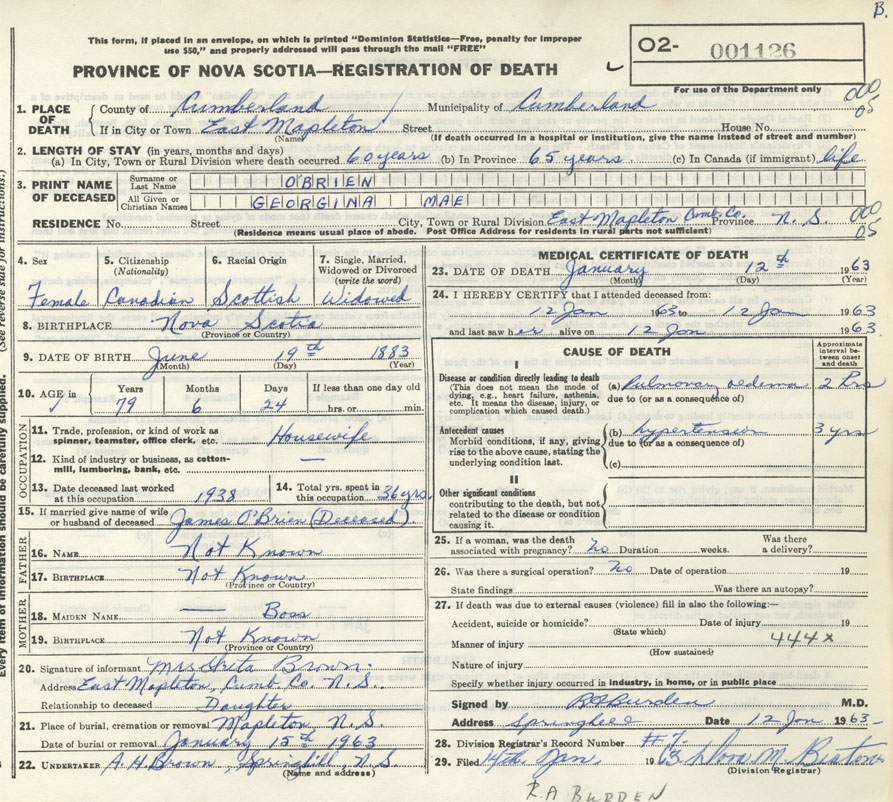 B.
This form, if placed in an envelope, on which is printed "Dominion Statistics—Free, penalty for improper
use $50," and properly addressed will pass through the mail "FREE"
PROVINCE OF NOVA SCOTIA—REGISTRATION OF DEATH
02- 001126
For use of the Department only
000
05
1. PLACE OF DEATH
County of Cumberland Municipality of Cumberland
If in City or Town East Mapleton Street House No.
(Name) (If death occurred in a hospital or institution, give the name instead of street and number)
2. LENGTH OF STAY (in years, months and days)
(a) In City, Town or Rural Division where death occurred 60 years (b) In Province 65 years (c) In Canada (if immigrant) life
3. PRINT NAME OF DECEASED
Surname or Last Name O'BRIEN
All Given or Christian Names GEORGINA MAE
RESIDENCE No. Street City, Town or Rural Division East Mapleton Cumb. Co. Province N. S.
000
05
(Residence means usual place of abode. Post Office Address for residents in rural parts not sufficient)
4. Sex Female
5. Citizenship (Nationality) Canadian
6. Racial Origin Scottish
7. Single, Married, Widowed or Divorced (write the word) Widowed
8. BIRTHPLACE Nova Scotia
(Province or Country)
9. DATE OF BIRTH June 19th 1883
(Month) (Day) (Year)
10. AGE in Years 79 Months 6 Days 24 If less than one day old hrs. or min.
OCCUPATION
11. Trade, profession, or kind of work as spinner, teamster, office clerk, etc. Housewife
12. Kind of industry or business, as cotton-mill, lumbering, bank, etc. —
13. Date deceased last worked at this occupation 1938
14. Total yrs. spent in this occupation 36 yrs.
15. If married give name of wife or husband of deceased James O'Brien (Deceased).
FATHER
16. NAME Not Known
17. BIRTHPLACE Not Known
(Province or Country)
MOTHER
18. MAIDEN NAME — Boss
19. BIRTHPLACE Not Known
(Province or Country)
20. Signature of informant Mrs Greta Brown.
Address East Mapleton, Cumb. Co. N. S.
Relationship to deceased Daughter
21. Place of burial, cremation or removal Mapleton, N. S.
Date of burial or removal January 15th 1963
22. UNDERTAKER A. H. Brown, Springhill, N. S.
(Name and address)
MEDICAL CERTIFICATE OF DEATH
23. DATE OF DEATH January 12th 1963
(Month) (Day) (Year)
24. I HEREBY CERTIFY that I attended deceased from:
12 Jan 1963 to 12 Jan 1963
and last saw her alive on 12 Jan 1963.
CAUSE OF DEATH
Approximate interval between onset and death
I
Disease or condition directly leading to death
(This does not mean the mode of dying, e.g., heart failure, asthenia, etc. It means the disease, injury, or complication which caused death.)
(a) Pulmonary oedema 2 hrs
due to (or as a consequence of)
Antecedent causes
Morbid conditions, if any, giving rise to the above cause, stating the underlying condition last.
(b) hypertension 3 yrs
due to (or as a consequence of)
(c)
II
Other significant conditions
contributing to the death, but not related to the disease or condition causing it.
25. If a woman, was the death associated with pregnancy? no Duration weeks. Was there a delivery?
26. Was there a surgical operation? no Date of operation 19
State findings Was there an autopsy?
27. If death was due to external causes (violence) fill in also the following:—
Accident, suicide or homicide? Date of injury 19
(State which)
Manner of injury 444x
(How sustained)
Nature of injury
Specify whether injury occurred in industry, in home, or in public place
Signed by R A Burden M.D.
Address Springhill Date 12 Jan 1963-
28. Division Registrar's Record Number #7-
29. Filed 14th Jan. 1963.
(Division Registrar)
R.A BURDEN
(See reverse side for instructions.)
Every item of information should be carefully supplied.